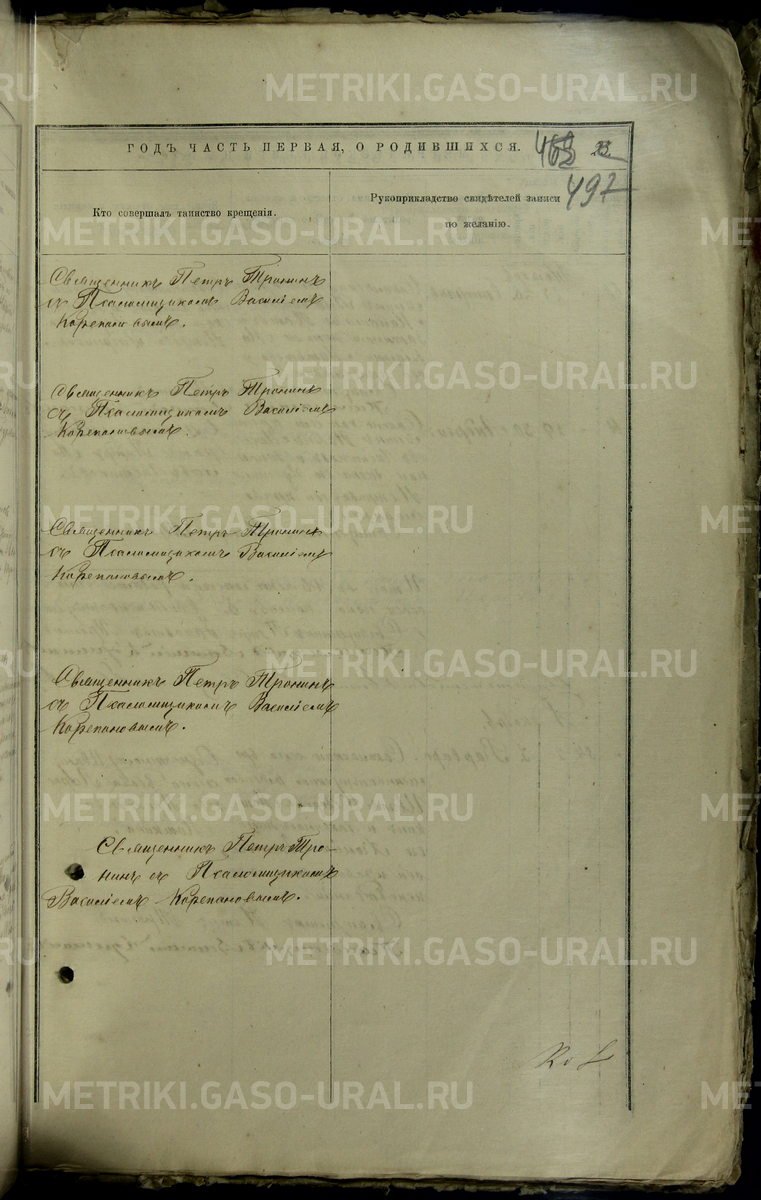 METRIKI.GASO-URAL.RU
ГОДЪ ЧАСТЬ ПЕРВАЯ, О РОДИВШИХСЯ.
497
Кто совершалъ таинство крещенія.
Рукоприкладство свидѣтелей записи
по желанію.
Священникъ Петръ Тронинъ
съ Псаломщикомъ Василіемъ
Корепановымъ.
Священникъ Петръ Тронинъ
съ Псаломщикомъ Василіемъ
Корепановымъ.
Священникъ Петръ Тронинъ
съ Псаломщикомъ Василіемъ
Корепановымъ.
Священникъ Петръ Тронинъ
съ Псаломщикомъ Василіемъ
Корепановымъ.
Священникъ Петръ Тро-
нинъ съ Псаломщикомъ
Василіемъ Корепановымъ.